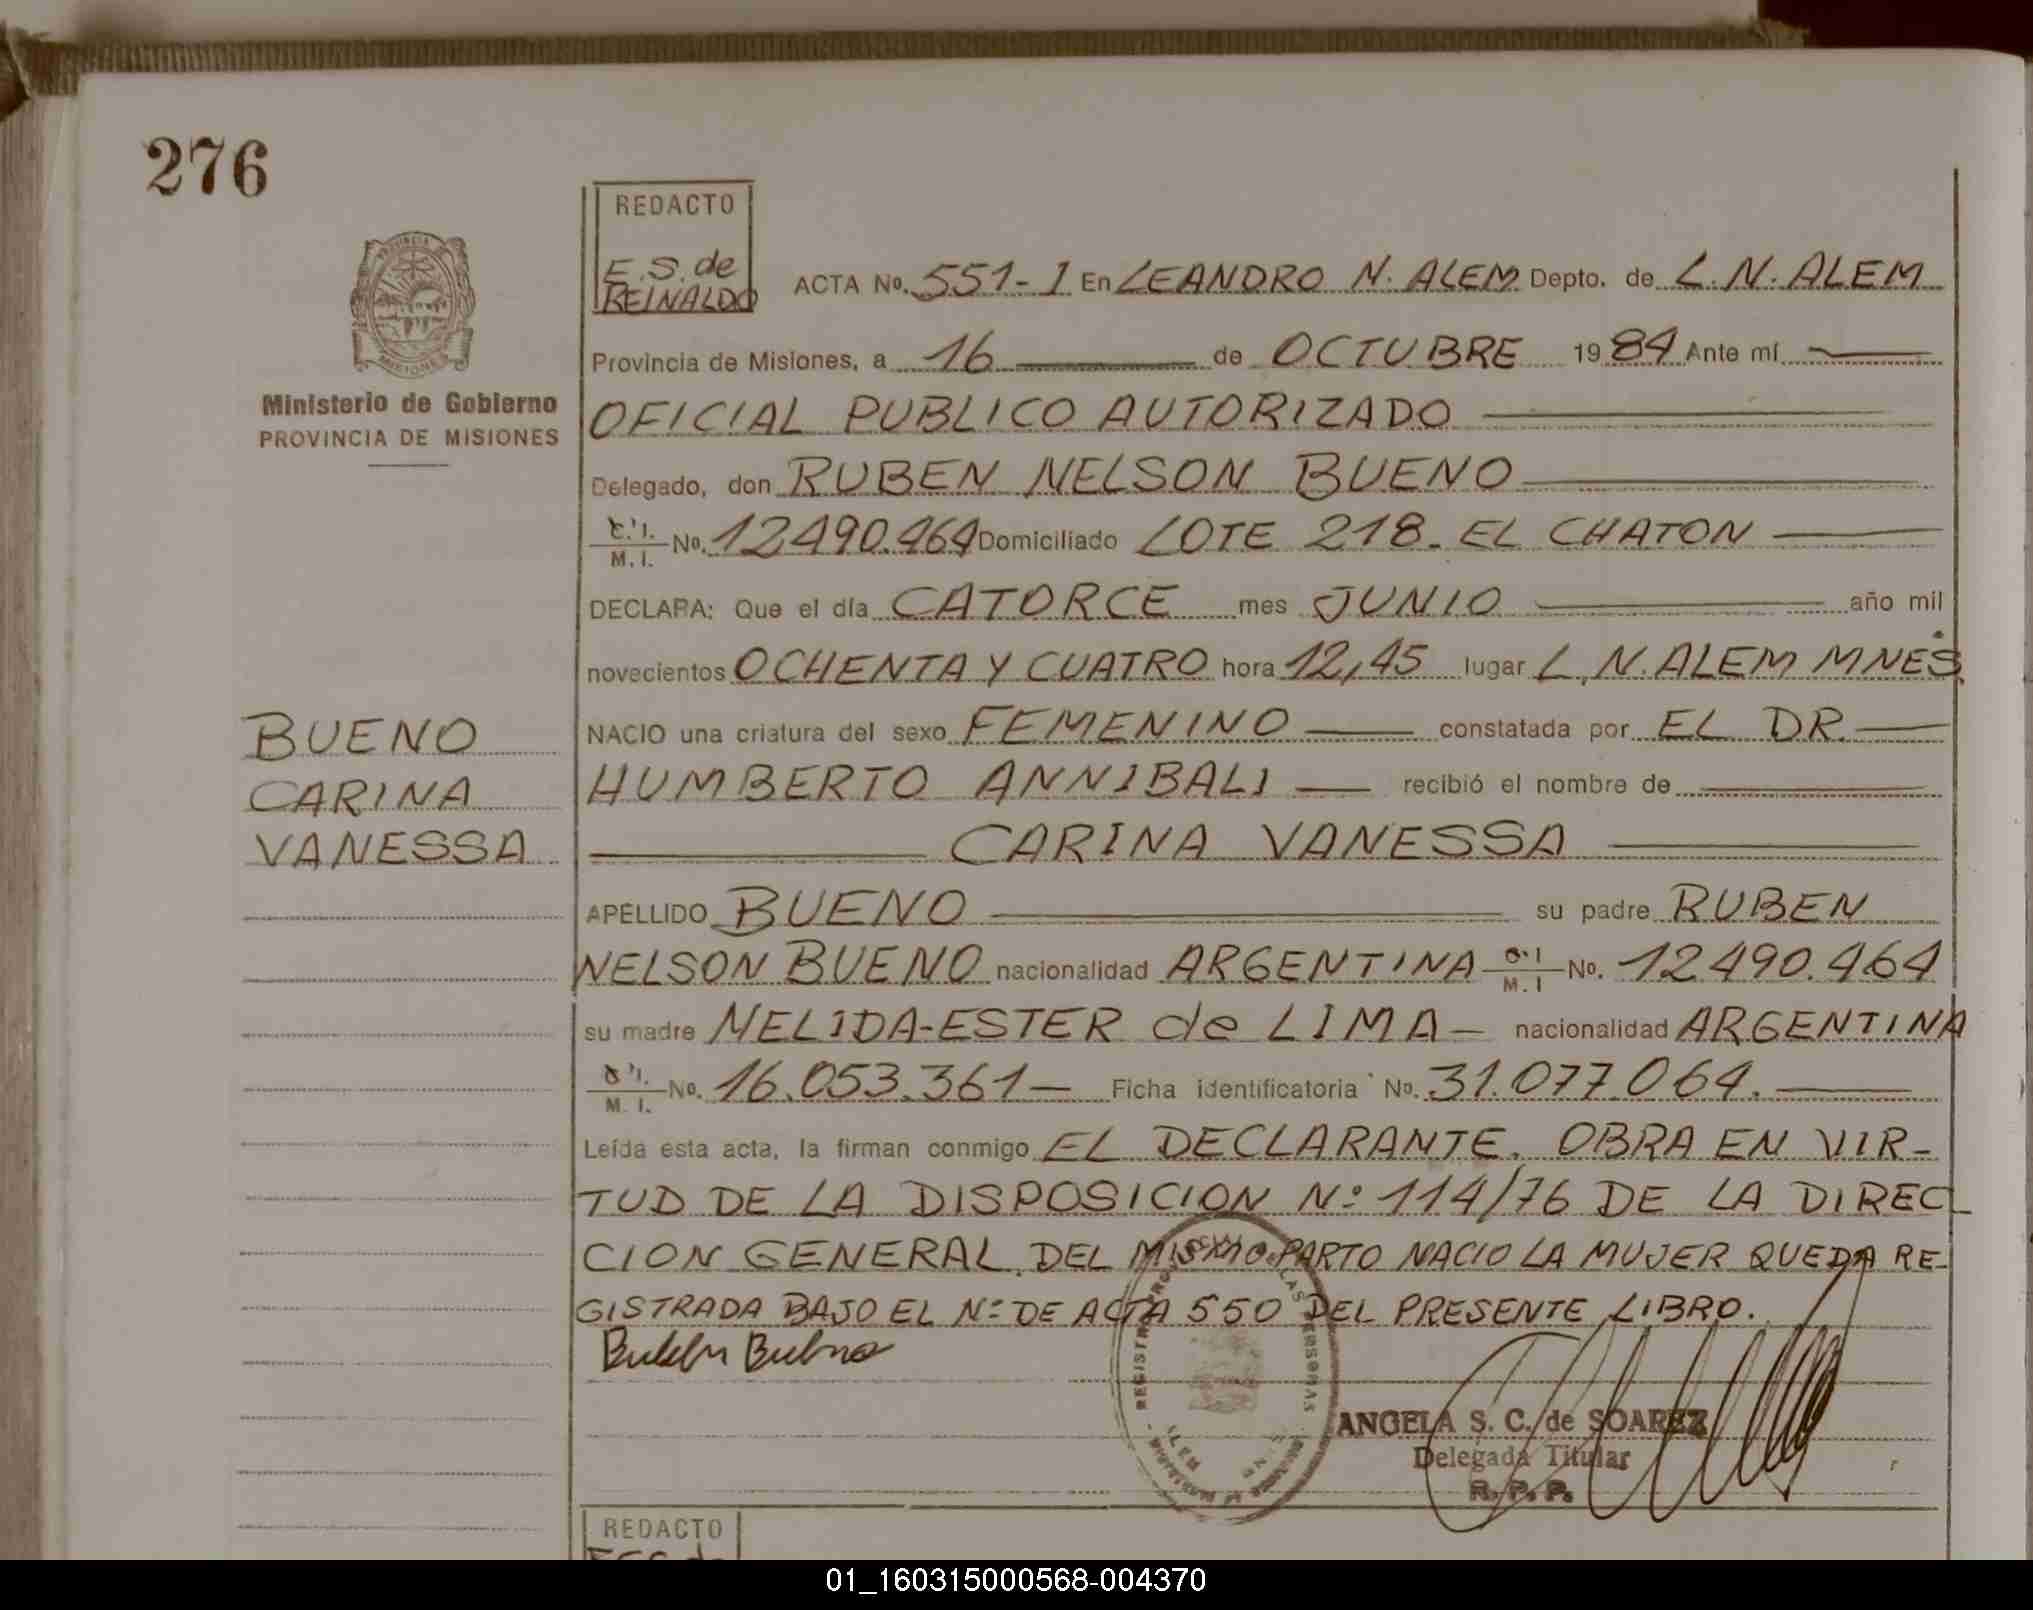 276
REDACTO
E.S. de
REINALDO
ACTA No. 551-I En LEANDRO N. ALEM Depto. de L.N. ALEM
Provincia de Misiones, a 16 de OCTUBRE 1984 Ante mí
OFICIAL PUBLICO AUTORIZADO
Delegado, don RUBEN NELSON BUENO
C.I. M.I. No. 12.490.464 Domiciliado LOTE 218. EL CHATON
DECLARA: Que el día CATORCE mes JUNIO año mil
novecientos OCHENTA Y CUATRO hora 12,45 lugar L.N. ALEM MNES.
NACIO una criatura del sexo FEMENINO constatada por EL DR.
HUMBERTO ANNIBALI recibió el nombre de
CARINA VANESSA
APELLIDO BUENO su padre RUBEN
NELSON BUENO nacionalidad ARGENTINA C.I M.I No. 12.490.464
su madre NELIDA-ESTER de LIMA nacionalidad ARGENTINA
C.I. M.I. No. 16.053.361 Ficha identificatoria No. 31.077.064.
Leída esta acta, la firman conmigo EL DECLARANTE. OBRA EN VIR-
TUD DE LA DISPOSICION Nº 114/76 DE LA DIREC-
CION GENERAL. DEL MISMO PARTO NACIO LA MUJER QUEDA RE-
GISTRADA BAJO EL Nº DE ACTA 550 DEL PRESENTE LIBRO.
PROVINCIA DE MISIONES
Ministerio de Gobierno
PROVINCIA DE MISIONES
BUENO
CARINA
VANESSA
REGISTRO PROVINCIAL DE LAS PERSONAS
ALEM
ANGELA S. C. de SOAREZ
Delegada Titular
R. P. P.
REDACTO
01_160315000568-004370